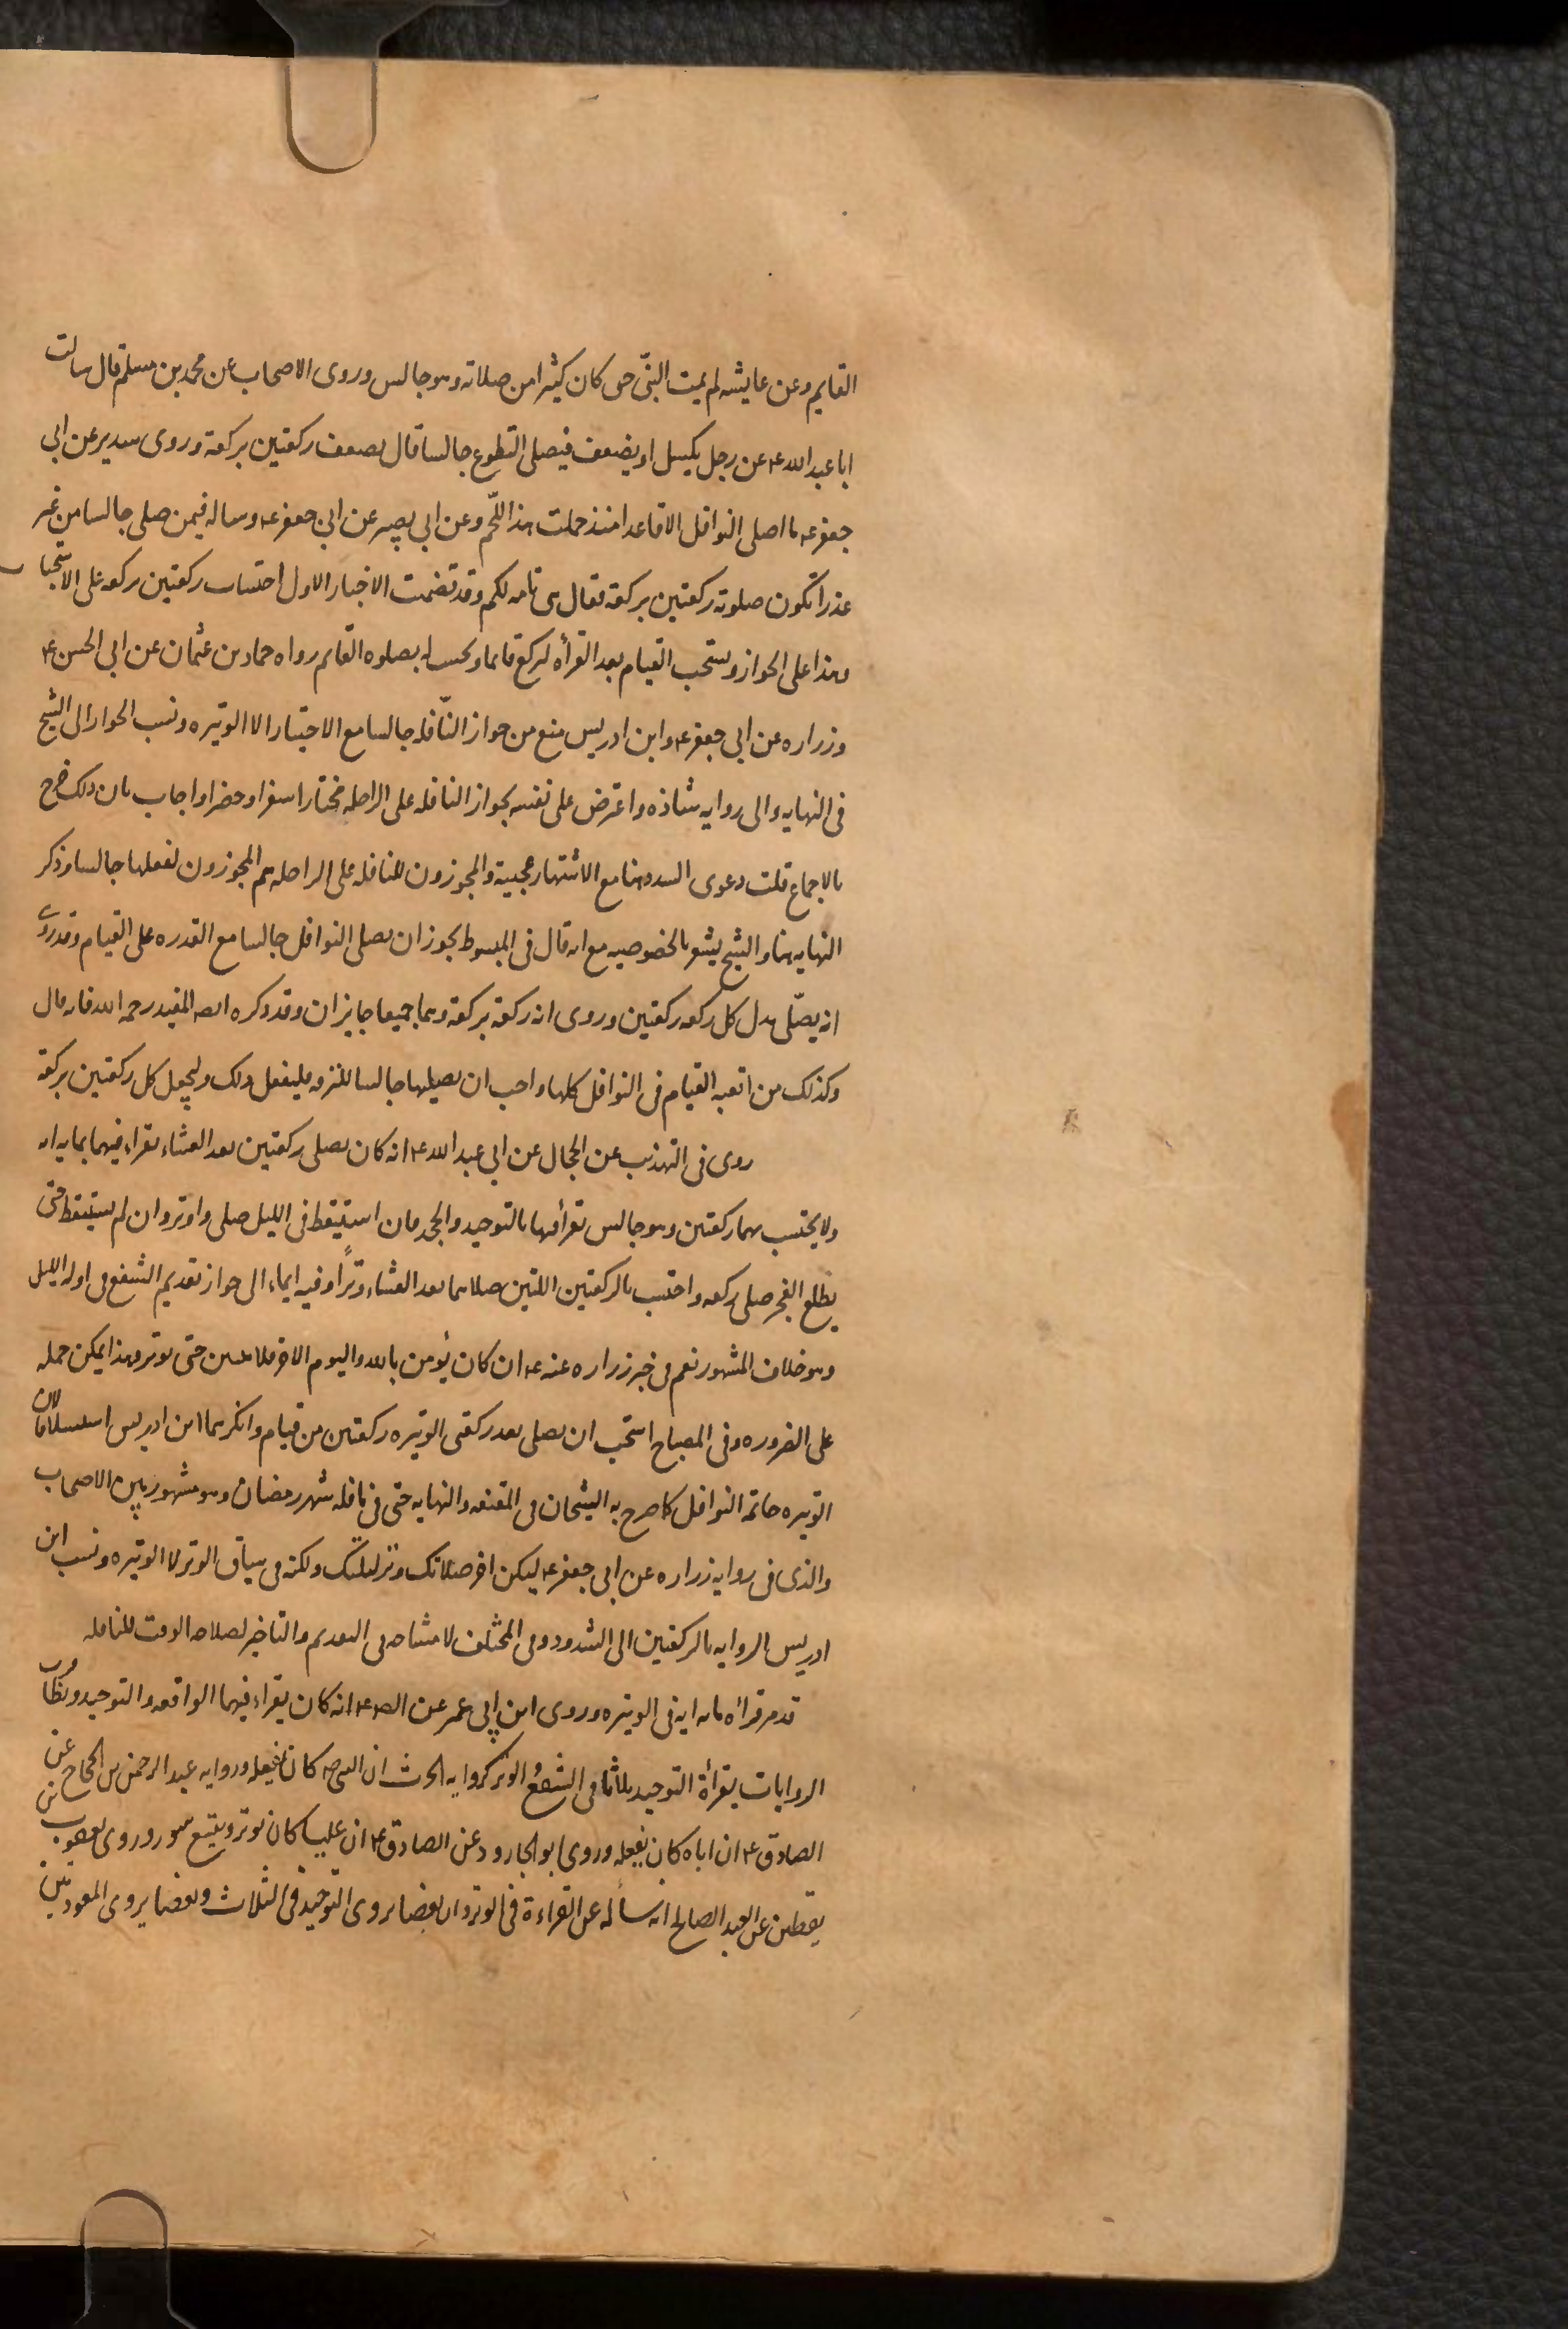 القايم وعن عايشه لم يمت النبّى حى كان كثيرا من صلاته وهو جالس وروى الاصحاب عن محمد بن مسلم قال سالت
ابا عبد الله ع عن رجل يكسل او يضعف فيصلى التطوع جالسا قال يضعف ركعتين بركعة وروى سدير عن ابى
جعفر ع ما اصلى النوافل الا قاعدا منذ حملت هذا اللّحم وعن ابى بصير عن ابى جعفر ع وساله فيمن صلى جالسا من غير
عذر اتكون صلوته ركعتين بركعة فقال هى تامه لكم وقد تضمنت الاخبار الاول احتساب ركعتين بركعه على الاستحباب
وهذا على الجواز ويستحب القيام بعد القرأه ليركع قايما ويحسب له بصلوه القايم رواه حماد بن عثمان عن ابى الحسن ع
وزراره عن ابى جعفر ع وابن ادريس منع من جواز النّافله جالسا مع الاختيار الا الوتيره ونسب الجواز الى الشيخ
فى النهايه والى روايه شاذه واعترض على نفسه بجواز النافله على الراحله مختارا سفرا وحضرا واجاب بان ذلك خرج
بالاجماع قلت دعوى الشذوذ هنا مع الاشتهار عجيبة والمجوزون للنافله على الراحله هم المجوزون لفعلها جالسا وذكر
النهايه هنا والشيخ يشعر بالخصوصيه مع انه قال فى المبسوط يجوز ان يصلى النوافل جالسا مع القدره على القيام وقد روى
انه يصلّى بدل كل ركعه ركعتين وروى انه ركعة بركعة وهما جميعا جايزان وقد ذكره ايضه المفيد رحمه الله فانه قال
وكذلك من اتعبه القيام فى النوافل كلها واحب ان يصليها جالسا للترفه فليفعل ذلك وليجعل كل ركعتين بركعة
روى فى التهذيب عن الحجال عن ابى عبد الله ع انه كان يصلى ركعتين بعد العشاء يقراء فيهما بمايه ايه
ولا يحتسب بهما ركعتين وهو جالس يقرأفيها بالتوحيد والجحد فان استيقظ فى الليل صلى واوتر وان لم يستيقظ حتى
يطلع الفجر صلى ركعه واحتسب بالركعتين اللتين صلاهما بعد العشاء وترًا وفيه ايماء الى جواز تقديم الشفع فى اول الليل
وهو خلاف المشهور نعم فى خبر زراره عنه ع ان كان يؤمن بالله واليوم الاخر فلا يبيتن حتى يوتر وهذا يمكن حمله
على الضروره وفى المصباح استحب ان يصلى بعد ركعتى الوتيره ركعتين من قيام وانكرهما ابن ادريس استسلافا لان
الوتيره خاتمه النوافل كما صرح به الشيخان فى المقنعه والنهايه حتى فى نافله شهر رمضان وهو مشهور بين الاصحاب
والذى فى روايه زراره عن ابى جعفر ع ليكن اخر صلاتك وتر ليلتك ولكنه فى سياق الوتر لا الوتيره ونسب ابن
ادريس الروايه بالركعتين الى الشذوذ وفى المختلف لا مشاحه فى التقديم والتاخير لصلاحه الوقت للنافله
قد مر قرأه مايه ايه فى الوتيره وروى ابن ابى عمير عن الص ع انه كان يقراء فيهما الواقعه والتوحيد
الروايات بقرأة التوحيد ثلاثا فى الشفع والوتر كروايه الحرث ان ابى ع كان يفعله وروايه عبد الرحمن بن الحجاج عن
الصادق ع ان اباه كان يفعله وروى ابو الجارود عن الصادق ع ان عليا كان يوتر بتسع سور وروى يعقوب بن
يقطين عن العبد الصالح انه سأله عن القراءة فى الوتر وان بعضا يروى التوحيد فى الثلاث وبعضا يروى المعوذتين